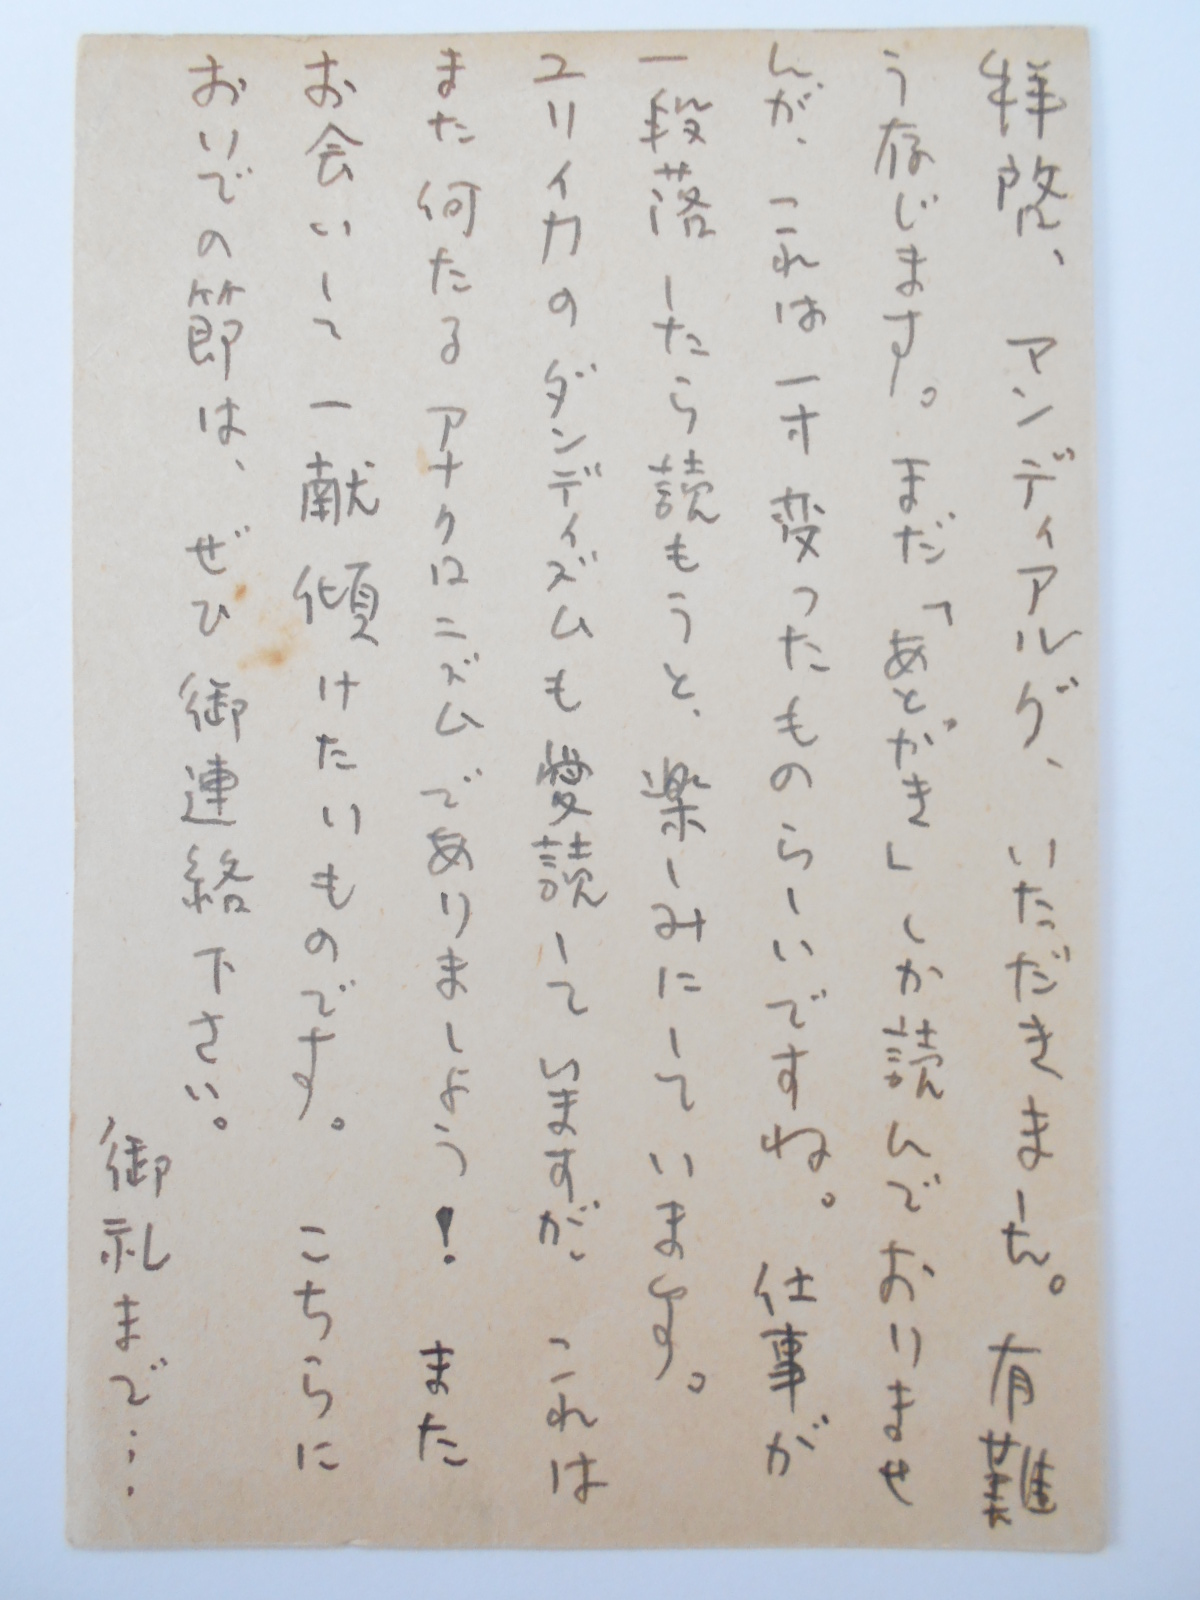 拝啓、マンディアルグ、いただきました。有難
う存じます。まだ「あとがき」しか読んでおりませ
んが、これは一寸変ったものらしいですね。仕事が
一段落したら読もうと、楽しみにしています。
ユリイカのダンディズムも愛読していますが、これは
また何たるアナクロニズムでありましょう!また
お会いして一献傾けたいものです。こちらに
おいでの節は、ぜひ御連絡下さい。
御礼まで…